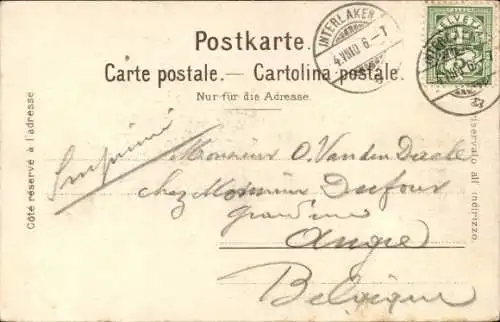 Postkarte.
Carte postale. — Cartolina postale.
Nur für die Adresse.
INTERLAKEN
4.VIII.10.6-7
HELVETIA
5
Côté réservé à l'adresse
riservato all'indirizzo.
Imprimé
Monsieur O. Van den Daele
chez Monsieur Dufour
grand'rue
Belgique